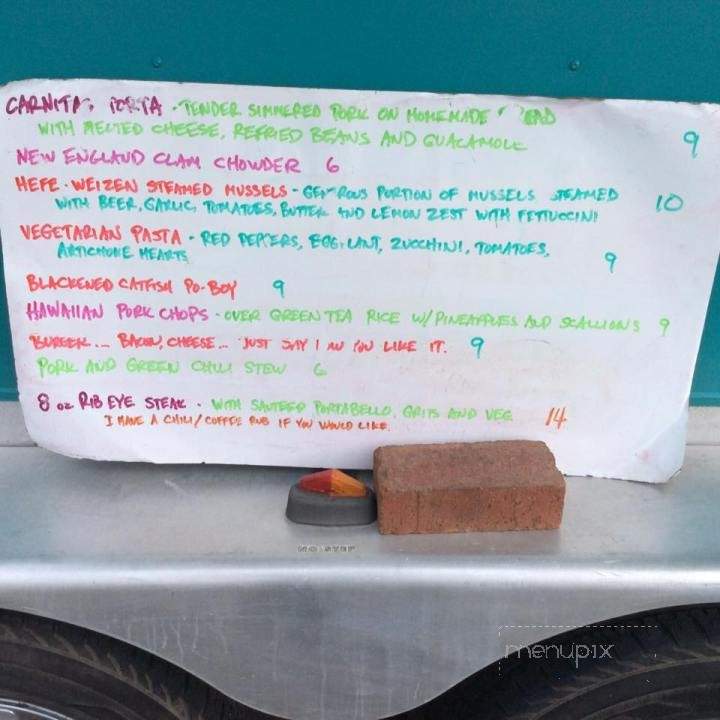 CARNITA TORTA - TENDER SIMMERED PORK ON HOMEMADE
WITH MELTED CHEESE, REFRIED BEANS AND GUACAMOLE 9
NEW ENGLAND CLAM CHOWDER 6
HEFE-WEIZEN STEAMED MUSSELS - GENEROUS PORTION OF MUSSELS STEAMED
WITH BEER, GARLIC, TOMATOES, BUTTER AND LEMON ZEST WITH FETTUCCINI 10
VEGETARIAN PASTA - RED PEPPERS, EGGPLANT, ZUCCHINI, TOMATOES,
ARTICHOKE HEARTS 9
BLACKENED CATFISH PO-BOY 9
HAWAIIAN PORK CHOPS - OVER GREEN TEA RICE W/ PINEAPPLES AND SCALLIONS 9
BURGER... BACON, CHEESE... JUST SAY HOW YOU LIKE IT. 9
PORK AND GREEN CHILI STEW 6
8 OZ RIB EYE STEAK - WITH SAUTEED PORTABELLO, GRITS AND VEG 14
I HAVE A CHILI/COFFEE RUB IF YOU WOULD LIKE.
menupix